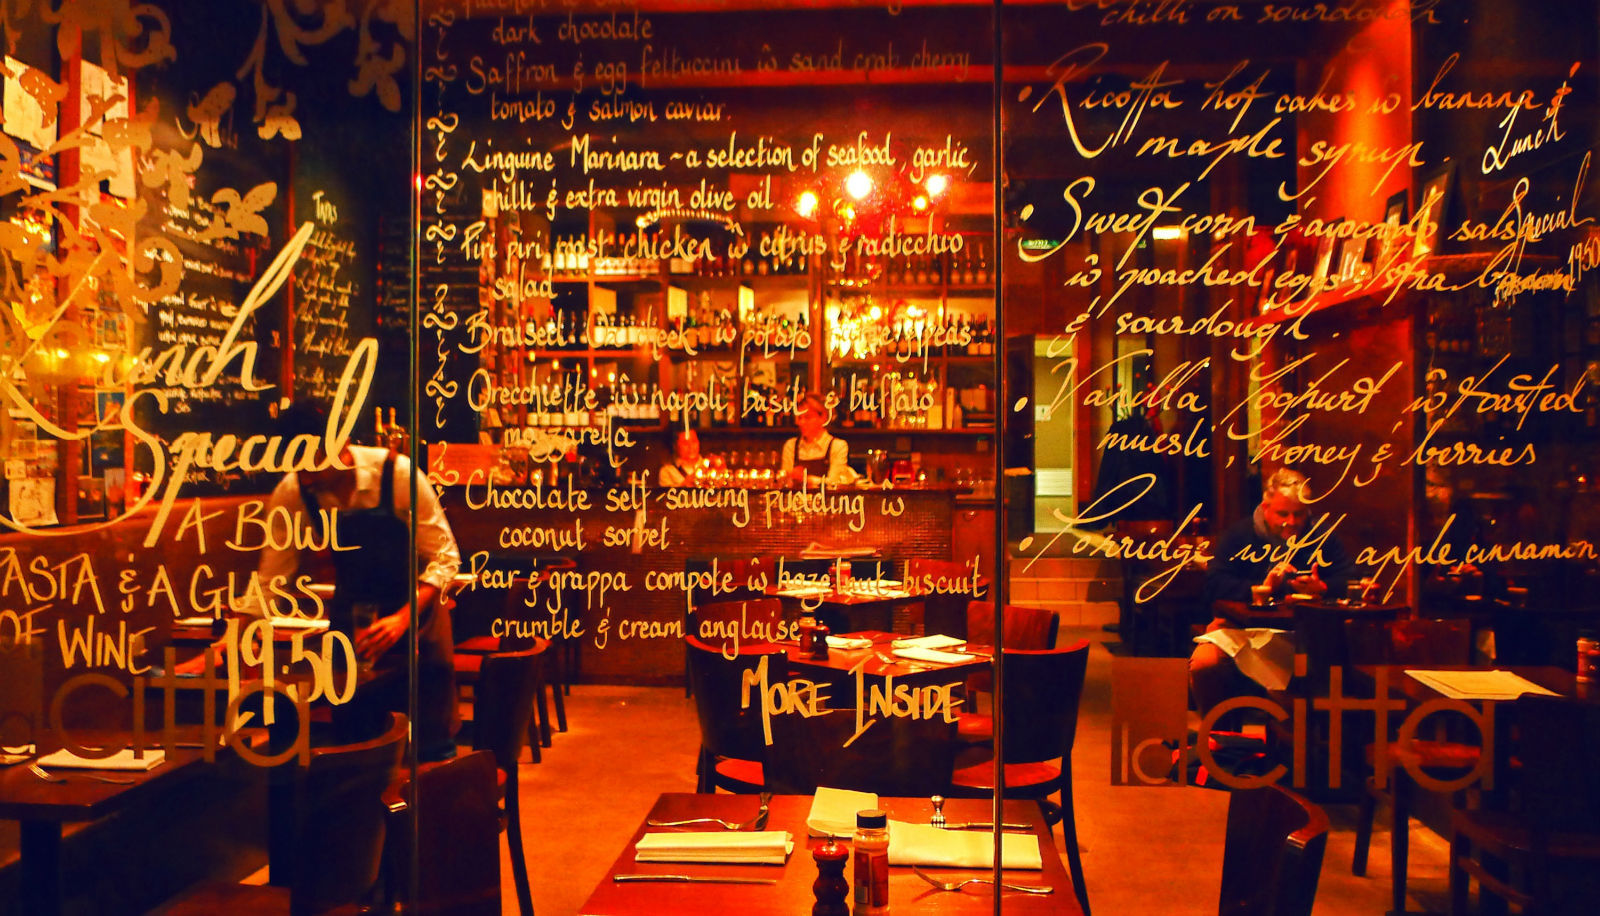 Lunch
Special
A BOWL
PASTA & A GLASS
OF WINE
19.50
citta
TAPAS
dark chocolate
Saffron & egg fettuccini w sand crab cherry
tomato & salmon caviar.
Linguine Marinara ~ a selection of seafood, garlic,
chilli & extra virgin olive oil.
Piri piri roast chicken w citrus & radicchio
salad.
Braised Ox cheek w potato & peas
Orecchiette w napoli, basil & buffalo
mozzarella.
Chocolate self-saucing pudding w
coconut sorbet.
Pear & grappa compote w hazelnut biscuit
crumble & cream anglaise
MORE INSIDE
chilli on sourdough.
• Ricotta hot cakes w banana &
maple syrup.
• Sweet corn & avocado salsa
w poached eggs, xtra bacon
& sourdough.
• Vanilla Yoghurt w toasted
muesli, honey & berries
• Porridge with apple, cinnamon
Lunch
Special
19.50
la citta